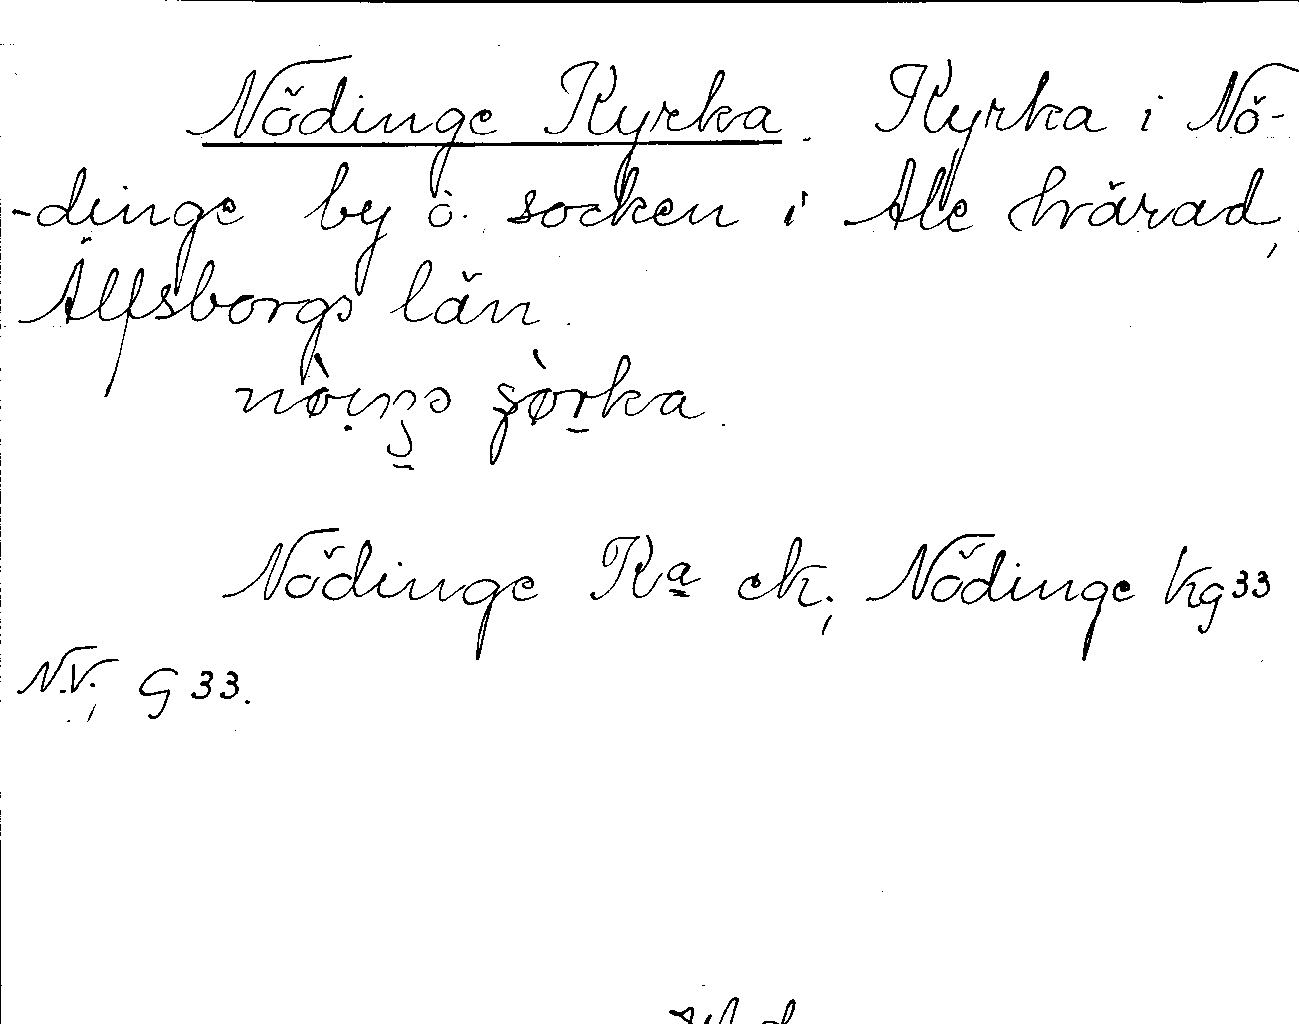 Nödinge Kyrka. Kyrka i Nö-
-dinge by o. socken i Ale härad,
Älfsborgs län.
Nödinge Kª ek; Nödinge Kg 33
N.V.; G 33.